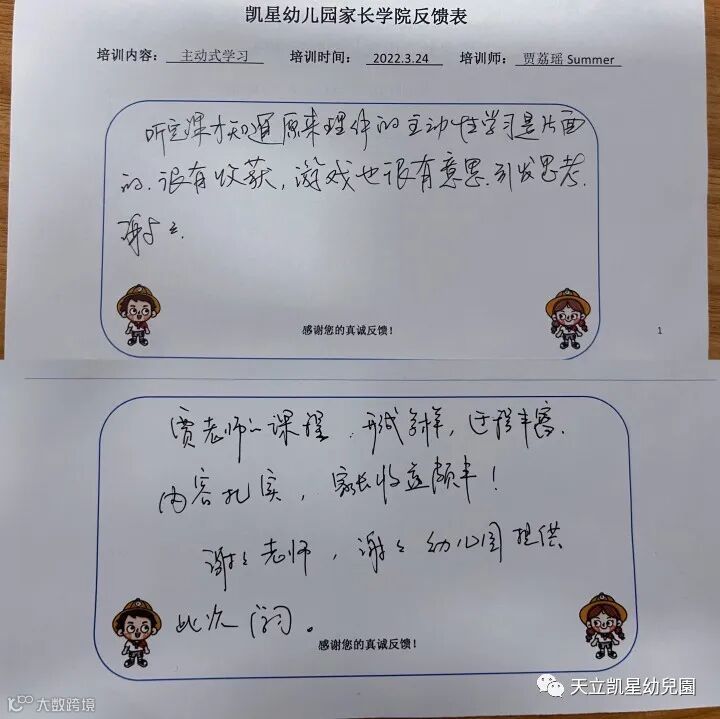 凯星幼儿园家长学院反馈表
培训内容： 主动式学习 培训时间： 2022.3.24 培训师： 贾荔瑶 Summer
听完课才知道原来理解的主动性学习是片面
的.很有收获，游戏也很有意思.引发思考.
谢谢.
感谢您的真诚反馈！
1
贾老师的课程.形式多样，过程丰富.
内容扎实，家长收益颇丰！
谢谢老师，谢谢幼儿园提供
此次学习。
感谢您的真诚反馈！
天立凯星幼兒園
大数跨境